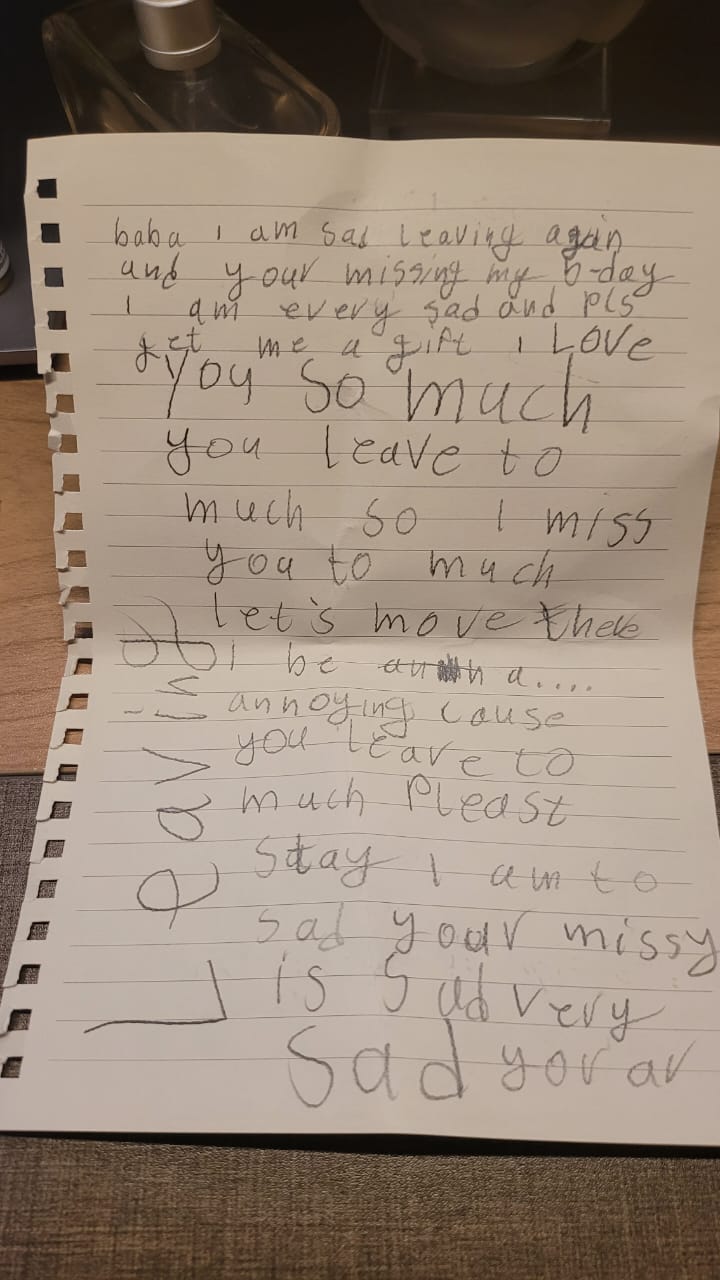 baba i am sad leaving again
and your missing my b-day
I am every sad and pls
get me a gift i LOVE
you so much
you leave to
much so I miss
you to much
let's move there
I be a....
annoying cause
you leave to
much Pleast
Stay I am to
sad your missy
is Sad very
Sad your ar
Leaving